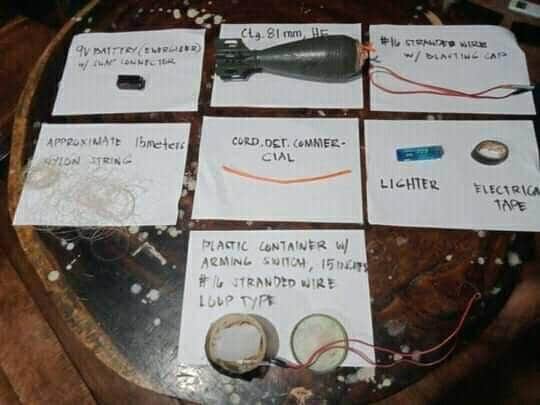 9V BATTERY (ENERGIZER)
W/ SNAP CONNECTOR
Ctg. 81mm, HE
#16 STRANDED WIRE
W/ BLASTING CAP
APPROXIMATE 15meters
NYLON STRING
CORD.DET. COMMER-
CIAL
LIGHTER
ELECTRICA
TAPE
PLASTIC CONTAINER W/
ARMING SWITCH, 15 INCHES
#16 STRANDED WIRE
LOUP TYPE